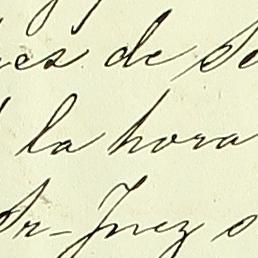 es de Se
la hora
Sr-Juez